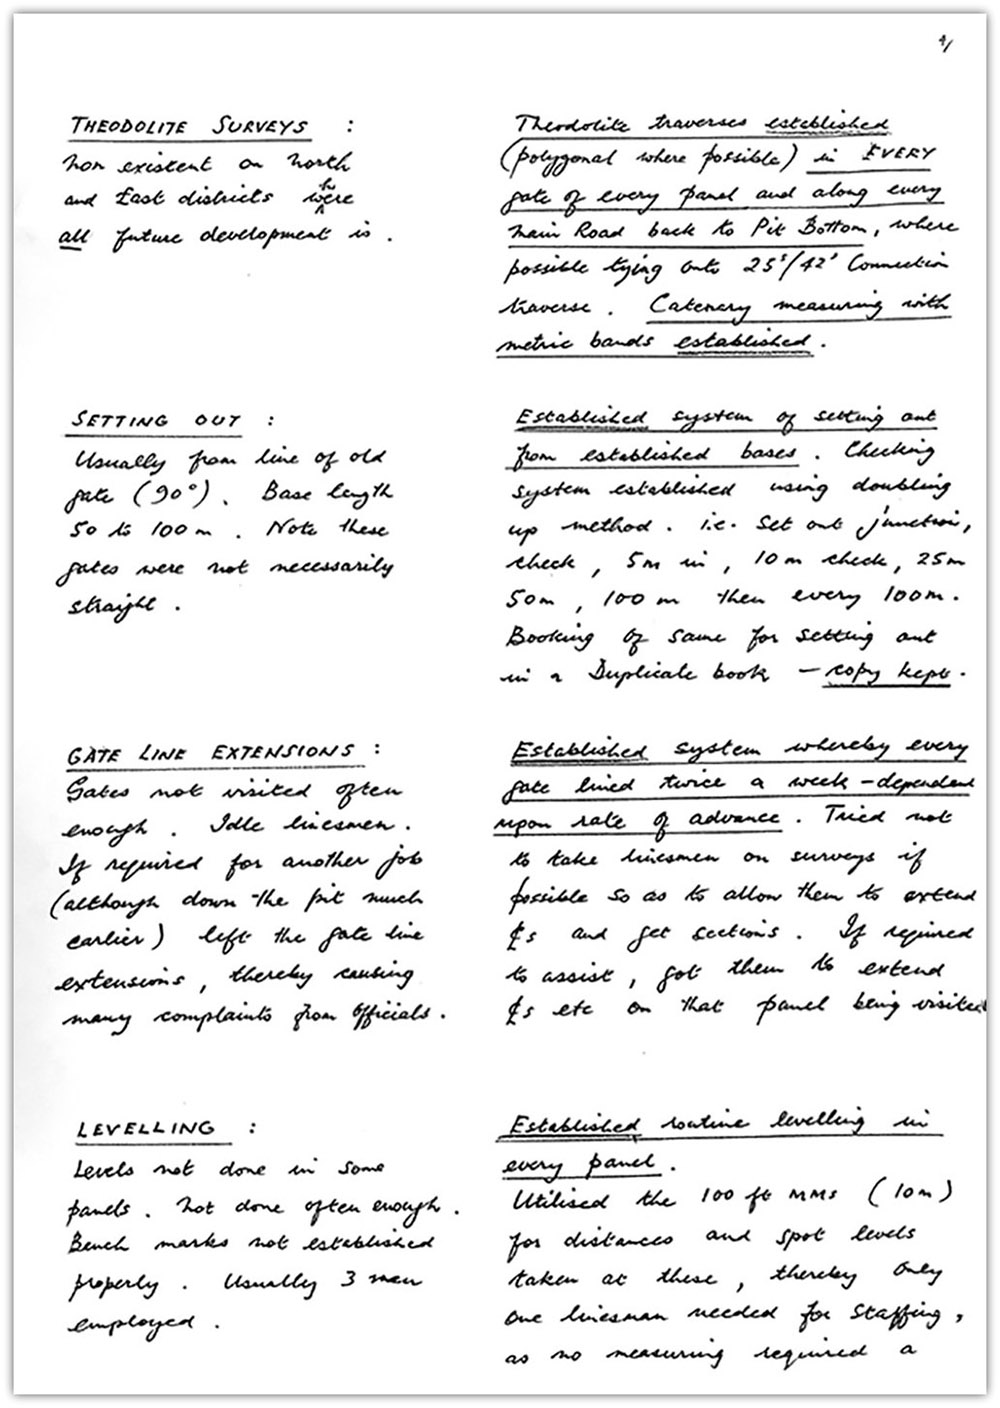 4/
THEODOLITE SURVEYS :
Non existent on North
and East districts where
all future development is .
Theodolite traverses established
(polygonal where possible) in EVERY
gate of every panel and along every
main Road back to Pit Bottom, where
possible tying onto 25s/42s Connection
traverse . Catenary measuring with
metric bands established .
SETTING OUT :
Usually from line of old
gate (90°) . Base length
50 to 100 m . Note these
gates were not necessarily
straight .
Established system of setting out
from established bases . Checking
system established using doubling
up method . i.e. Set out junction,
check , 5m in , 10 m check , 25m
50m , 100 m then every 100m .
Booking of same for setting out
in a Duplicate book - copy kept .
GATE LINE EXTENSIONS :
Gates not visited often
enough . Idle linesmen .
If required for another job
(although down the pit much
earlier) left the gate line
extensions , thereby causing
many complaints from officials .
Established system whereby every
gate lined twice a week - dependant
upon rate of advance . Tried not
to take linesmen on surveys if
possible so as to allow them to extend
℄s and get sections . If required
to assist , got them to extend
℄s etc on that panel being visited
LEVELLING :
Levels not done in some
panels . Not done often enough .
Bench marks not established
properly . Usually 3 men
employed .
Established routine levelling in
every panel .
Utilised the 100 ft MMs (10m)
for distances and spot levels
taken at these , thereby only
one linesman needed for staffing ,
as no measuring required a